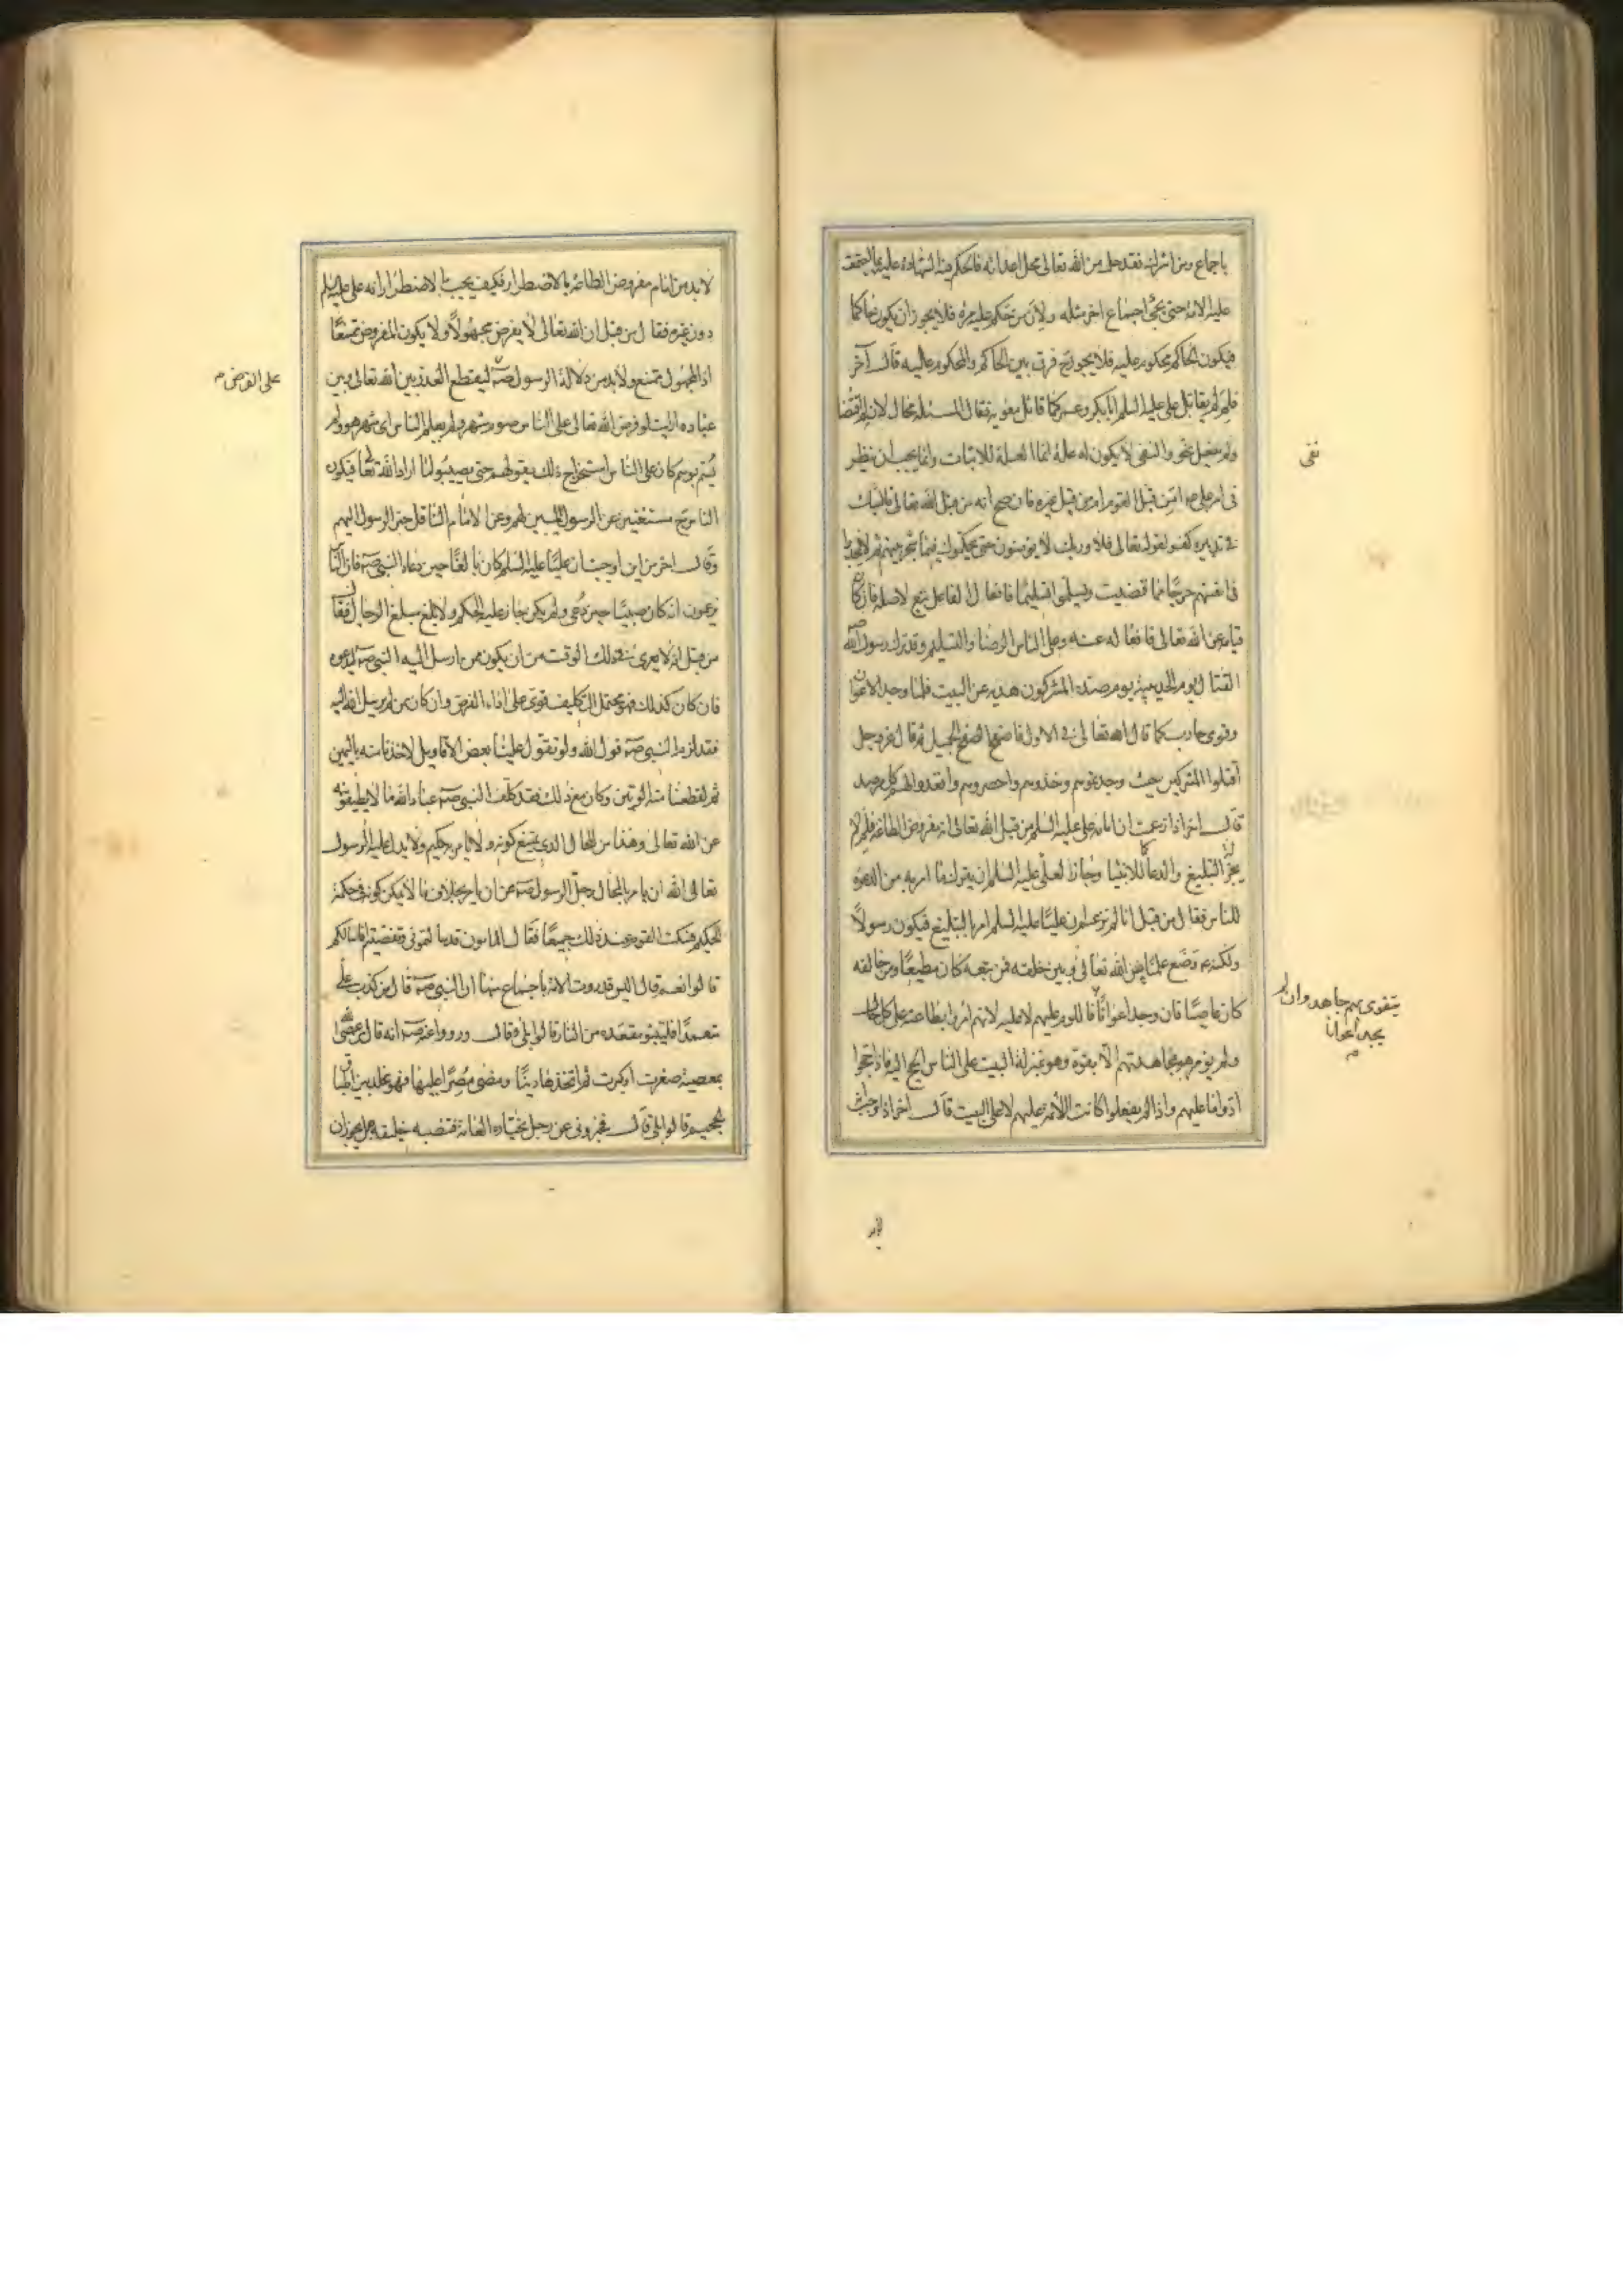 باجماع ومن اشرك فقد حل من الله تعالى محل اعدائه فالحكم في الشهادة عليه بما يستحقه
عليه الامة حتى يجئ اجتماع اخر مثله ولان من تحكم عليه مرة فلا يجوز ان يكون حاكما
فيكون الحاكم محكوم عليه فلا يجوز ح فرق بين الحاكم والمحكوم عليه قال آخر
فلم لم يقاتل على عليه السلم ابا بكر وعمر كما قاتل معوية فقال المسئلة محال لان لم اقتضا
ولم يفعل نفى والنفى لا يكون له علة انما العلة للاثبات وانما يجب ان ينظر
فى امر على ع امن قبل القوم ام من قبل غيره فان صح انه من قبل الله تعالى فالشك
فى تدبيره كفر لقوله تعالى فلا وربك لا يؤمنون حتى يحكموك فيما شجر بينهم ثم لا يجدوا
فى انفسهم حرجا مما قضيت ويسلموا تسليما فافعال الفاعل تبع لاصله فان كان
قيامه عن الله تعالى فافعاله عنه وعلى الناس الرضا والتسليم وقد ترك رسول الله صه
القتال يوم الحديبية يوم صد المشركون هديه عن البيت فلما وجد الاعوان
وقوى حارب كما قال الله تعالى فى الاول فاصفح الصفح الجميل ثم قال عز وجل
اقتلوا المشركين حيث وجدتموهم وخذوهم واحصروهم واقعدوا لهم كل مرصد
قال اخر اذا زعمت ان امامة على عليه السلم من قبل الله تعالى انه مفروض الطاعة فلم لم
يجز الا التبليغ والدعاء كما للانبيا وجاز لعلى عليه السلم ان يترك ما امر به من الدعوة
للناس فقال من قبل انا لم نزعم ان عليا عليه السلم امر بالتبليغ فيكون رسولا
ولكنه ع وضع علما بين الله تعالى وبين خلقه فمن تبعه كان مطيعا ومن خالفه
كان عاصيا فان وجد اعوانا فاللوم عليهم لا عليه لانهم امروا بطاعته على كل حال
ولم يؤمر هو بمجاهدتهم الا بقوة وهو بمنزلة البيت على الناس الحج اليه فاذا حجوا
ادوا ما عليهم واذا لم يفعلوا كانت اللائمة عليهم لا على البيت قال اخر اذا اوجب انه
نفى
يتقوى بهم جاهد وان لم
يجد اعوانا
م
لا بد من امام مفروض الطاعة بالاضطرار فكيف يجب بالاضطرار انه على عليه السلم
دون غيره فقال من قبل ان الله تعالى لا يفرض مجهولا ولا يكون المفروض ممتنعا
اذ المجهول ممتنع ولا بد من دلالة الرسول صه ليقطع العذر بين الله تعالى وبين
عباده ارايت لو فرض الله تعالى على الناس صوم شهر ولم يعلم الناس اى شهر هو ولم
يسم بوسم كان على الناس استخراج ذلك بعقولهم حتى يصيبوا ما اراد الله تعالى فيكون
الناس ح مستغنين عن الرسول المبين لهم وعن الامام الناقل خبر الرسول اليهم
وقال اخر من اين اوجبت ان عليا عليه السلم كان بالغا حين دعاه النبى صه فان الناس
يزعمون انه كان صبيا حين دعى ولم يكن جاز عليه الحكم ولا بلغ مبلغ الرجال فقال
من قبل انه لا يعرى فى ذلك الوقت من ان يكون ممن ارسل اليه النبى صه ليدعوه
فان كان كذلك فهو محتمل التكليف قوى على اداء الفرض وان كان ممن لم يرسل اليه
فقد لزم النبى صه قول الله ولو تقول علينا بعض الاقاويل لاخذنا منه باليمين
ثم لقطعنا منه الوتين وكان مع ذلك فقد كلف النبى صه عباد الله ما لا يطيقونه
عن الله تعالى وهذا من المحال الذى يمتنع كونه ولا يامر به حكيم ولا يدل عليه الرسول
تعالى الله ان يامر بالمحال وجل الرسول صه عن ان يامر بخلاف ما لا يمكن كونه فى حكمة
الحكيم فسكت القوم عند ذلك جميعا فقال المامون قد سالتمونى ونقضتم افاسالكم
قالوا نعم قال اليس قد روت الامة باجماع منها ان النبى صه قال من كذب على
متعمدا فليتبوء مقعده من النار قالوا بلى قال ورووا عنه صه انه قال من عصى الله
بمعصية صغرت او كبرت ثم اتخذها دينا ومضى مصرا عليها فهو مخلد بين اطباق
الجحيم قالوا بلى قال فخبرونى عن رجل تختاره العامة فتنصبه خليفة هل يجوز ان
على الفرض م